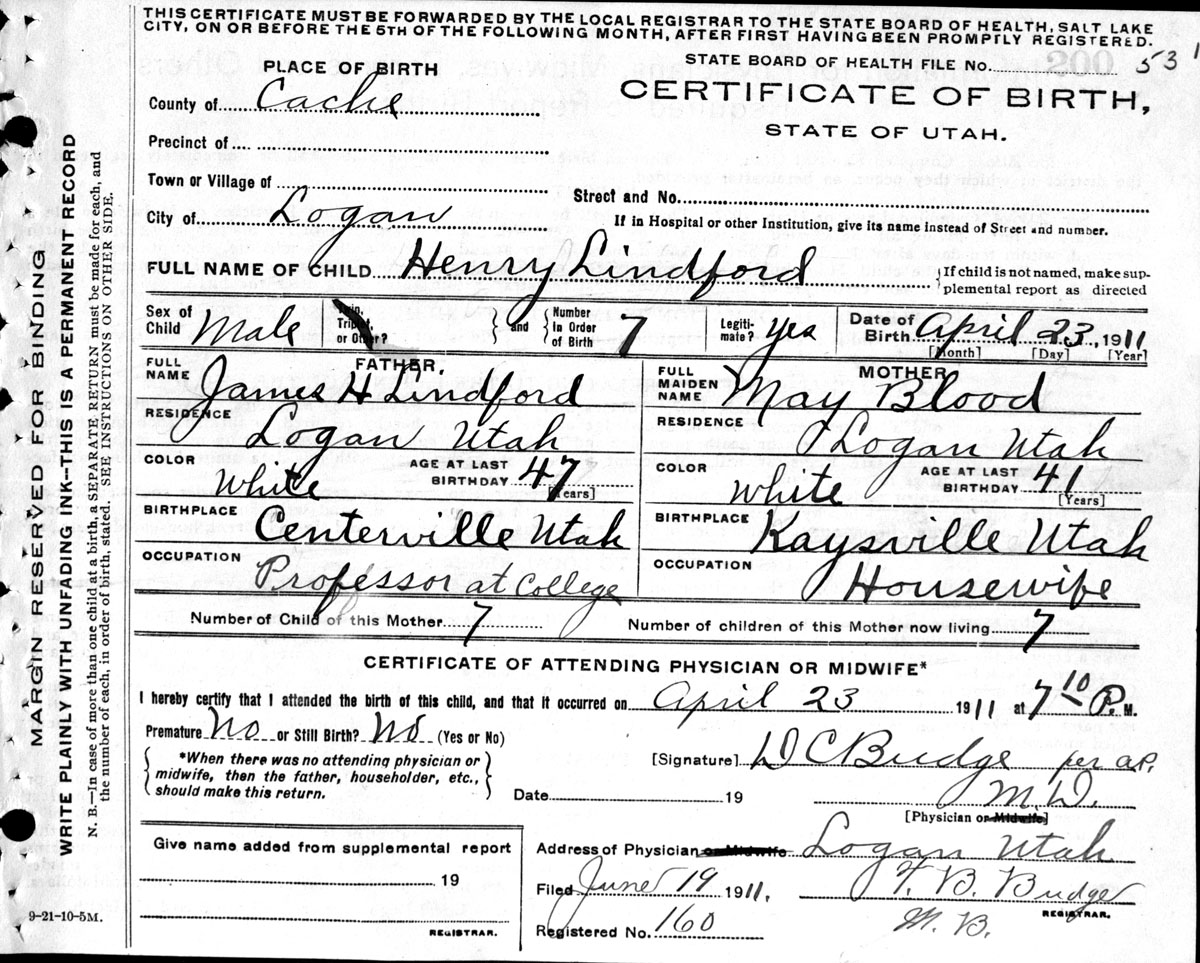 THIS CERTIFICATE MUST BE FORWARDED BY THE LOCAL REGISTRAR TO THE STATE BOARD OF HEALTH, SALT LAKE
CITY, ON OR BEFORE THE 5TH OF THE FOLLOWING MONTH, AFTER FIRST HAVING BEEN PROMPTLY REGISTERED.
STATE BOARD OF HEALTH FILE No. 531
PLACE OF BIRTH
CERTIFICATE OF BIRTH,
STATE OF UTAH.
County of Cache
Precinct of
Town or Village of
Street and No.
City of Logan
If in Hospital or other Institution, give its name instead of Street and number.
FULL NAME OF CHILD Henry Lindford
If child is not named, make sup-
plemental report as directed
Sex of Child Male
Twin, Triplet, or Other?
and
Number in Order of Birth 7
Legiti-mate? yes
Date of Birth April 23, 1911
[Month] [Day] [Year]
FATHER.
FULL NAME James H Lindford
RESIDENCE Logan Utah
COLOR White
AGE AT LAST BIRTHDAY 47 [Years]
BIRTHPLACE Centerville Utah
OCCUPATION Professor at College
MOTHER
FULL MAIDEN NAME May Blood
RESIDENCE Logan Utah
COLOR White
AGE AT LAST BIRTHDAY 41 [Years]
BIRTHPLACE Kaysville Utah
OCCUPATION Housewife
Number of Child of this Mother 7
Number of children of this Mother now living 7
CERTIFICATE OF ATTENDING PHYSICIAN OR MIDWIFE*
I hereby certify that I attended the birth of this child, and that it occurred on April 23 1911 at 7 10 P. M.
Premature No or Still Birth? No (Yes or No)
*When there was no attending physician or
midwife, then the father, householder, etc.,
should make this return.
[Signature] D C Budge per a.P.
M.D.
Date 19
[Physician or Midwife]
Give name added from supplemental report
19
REGISTRAR.
Address of Physician or Midwife Logan Utah
Filed June 19 1911.
F. B. Budge
REGISTRAR.
M. B.
Registered No. 160
MARGIN RESERVED FOR BINDING
WRITE PLAINLY WITH UNFADING INK—THIS IS A PERMANENT RECORD
N. B.—In case of more than one child at a birth, a SEPARATE RETURN must be made for each, and
the number of each, in order of birth, stated. SEE INSTRUCTIONS ON OTHER SIDE.
9-21-10-5M.